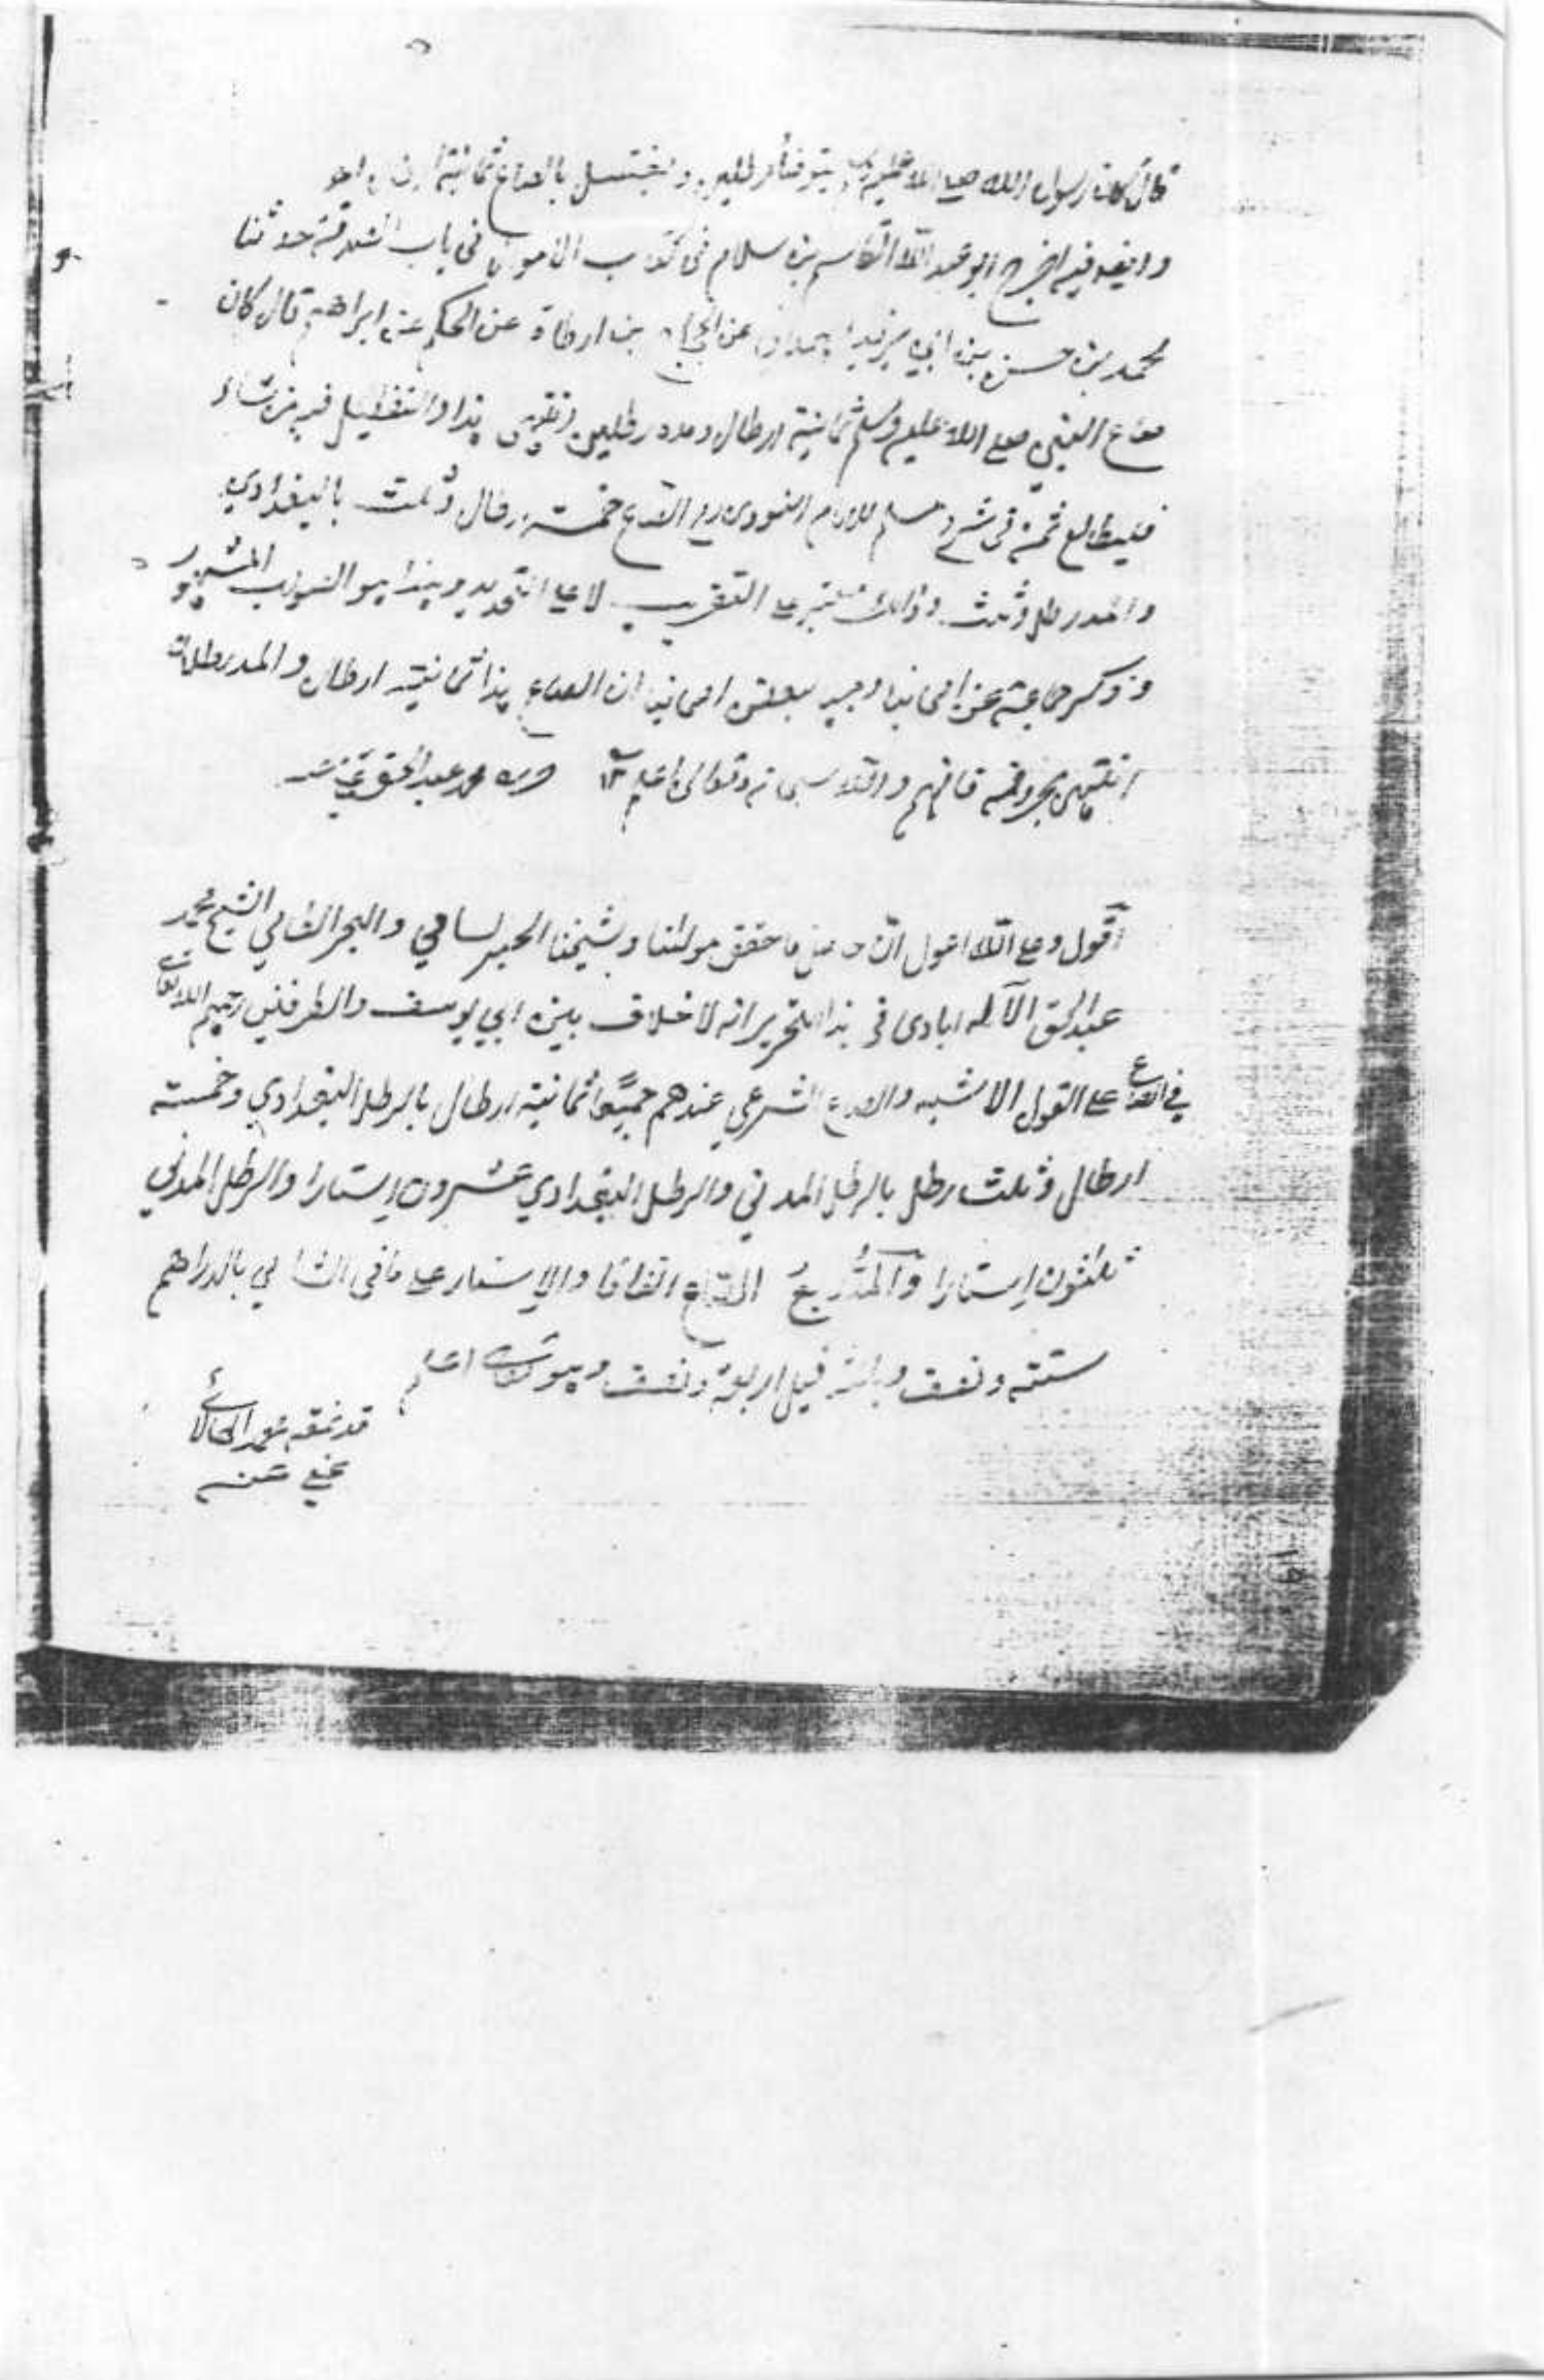 قال كان رسول الله صلى الله عليه وسلم يتوضأ برطلين ويغتسل بالصاع ثمانية
وايضا فيه اخرج ابو عبيد القاسم بن سلام في كتاب الاموال في باب الصدقة حدثنا
محمد بن حسن بن ابي يزيد الهمداني عن الحجاج بن ارطاة عن الحكم عن ابراهيم قال كان
صاع النبي صلى الله عليه وسلم ثمانية ارطال ومده رطلين انتهى هذا والتفصيل فيه من شاء
فليطالع ثمه في شرح مسلم للامام النووي الصاع خمسة ارطال وثلث بالبغدادي
والمد رطل وثلث وذلك معتبر على التقريب لا على التحديد وهذا هو الصواب المشهور
وذكر جماعة من اصحابنا وجها لبعض اصحابنا ان الصاع هذا ثمانية ارطال والمد رطلان
انتهى بحروفه فافهم والله سبحانه وتعالى اعلم ١٢ حرره محمد عبد الحق عفي عنه
اقول وعلى الله اعول ان حاصل ما حقق مولانا وشيخنا الحبر السامي والبحر الطامي الشيخ محمد
عبد الحق الآله ابادى في هذا التحرير انه لا خلاف بين ابي يوسف والطرفين رحمهم الله تعالى
في الصاع على القول الاشبه والصاع الشرعي عندهم جميعا ثمانية ارطال بالرطل البغدادي وخمسة
ارطال وثلث رطل بالرطل المدني والرطل البغدادي عشرون استارا والرطل المدني
ثلثون استارا والمد ربع الصاع اتفاقا والاستار على ما في الشامي بالدراهم
ستة ونصف وبالمثاقيل اربعة ونصف وهو تعالى اعلم
قد نمقه محمد
عفي عنه